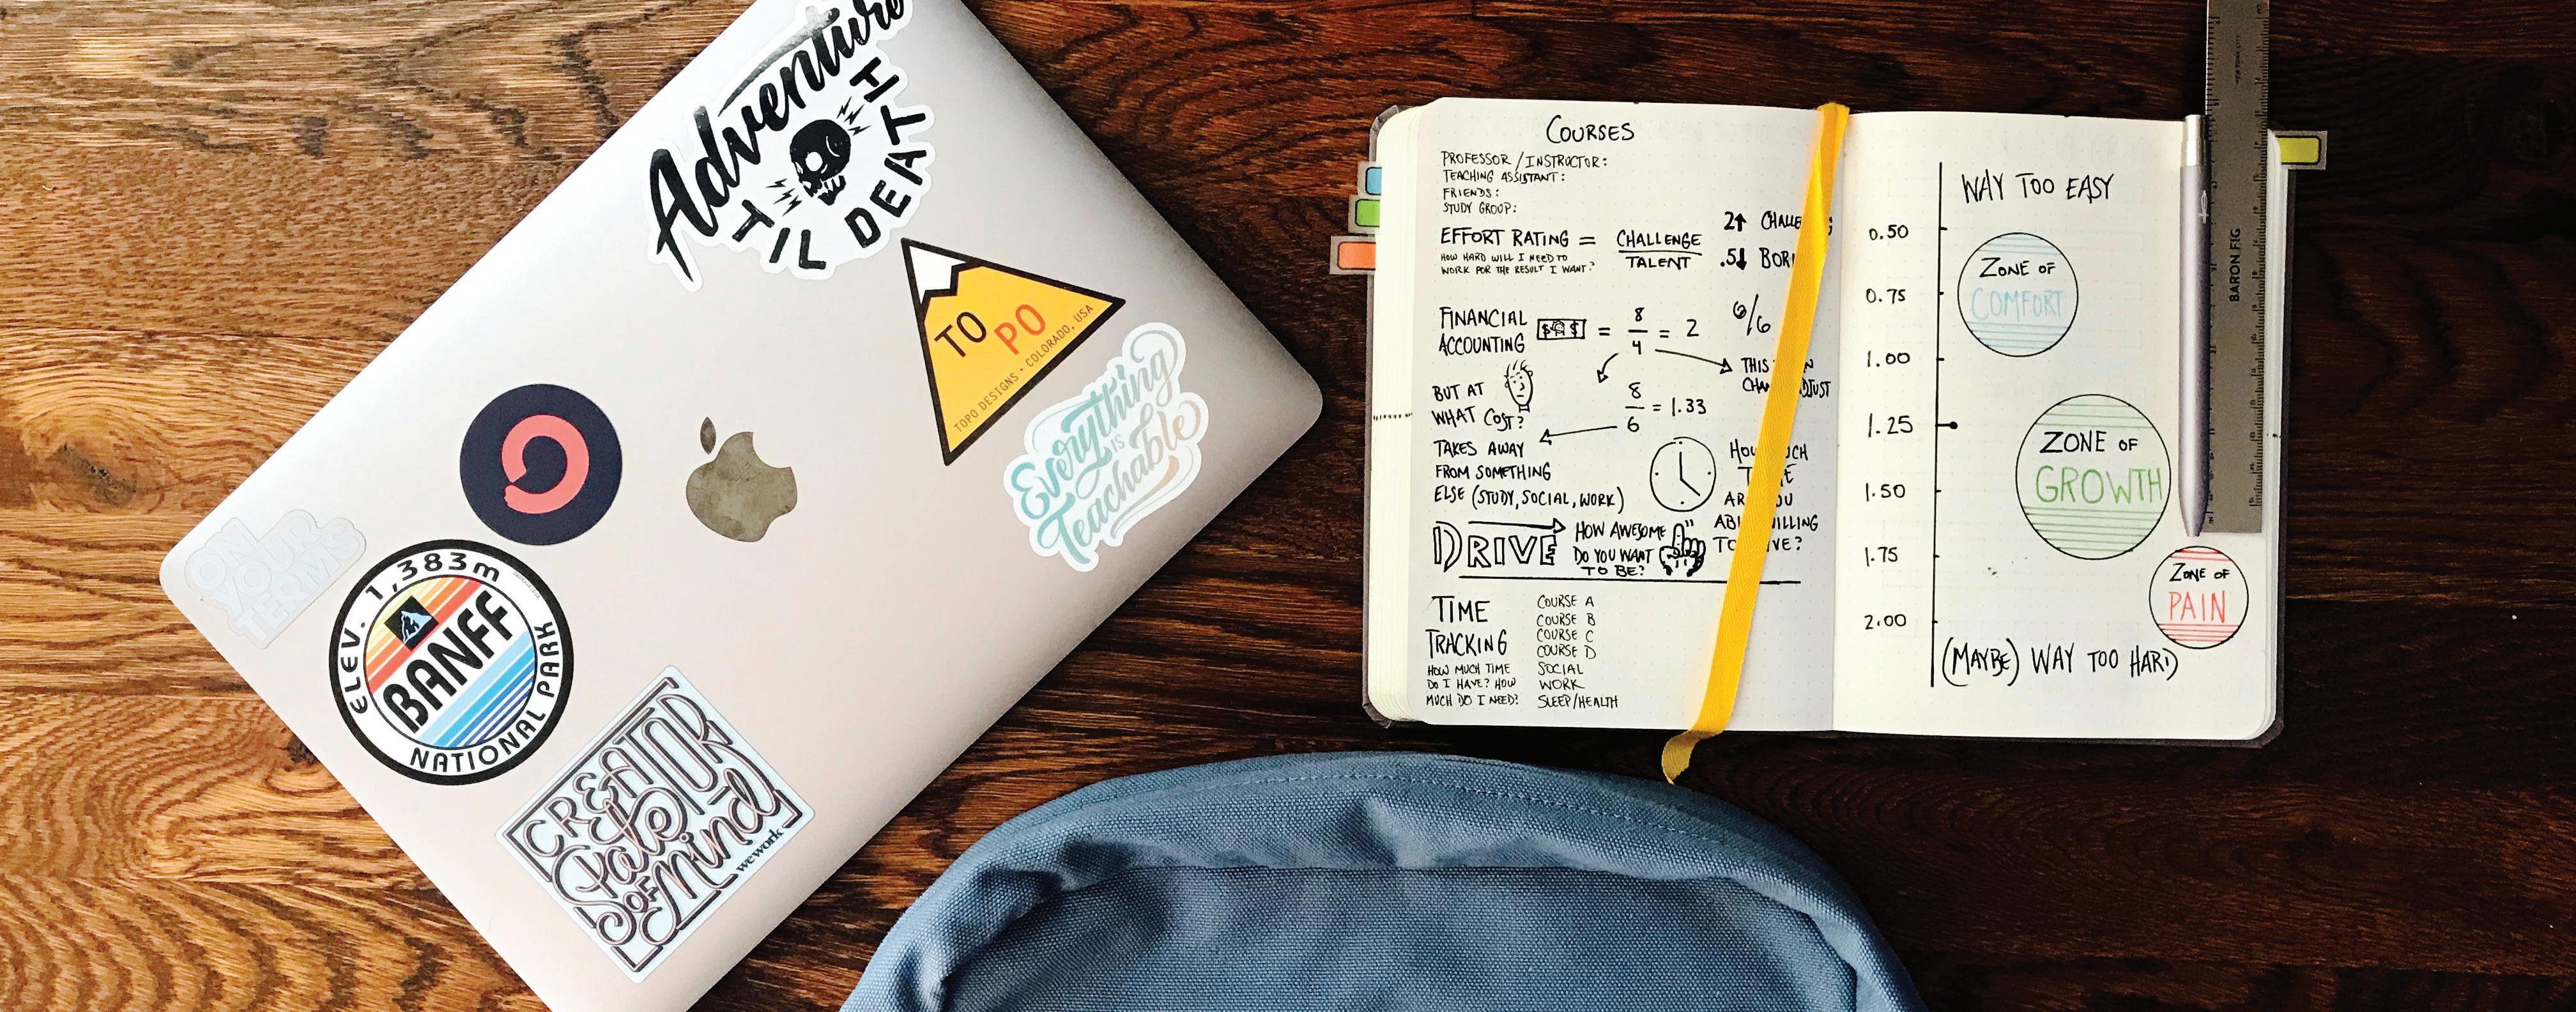 Adventure
TIL DEATH
TO PO
TOPO DESIGNS • COLORADO, USA
Everything
IS
Teachable
ON
YOUR
TERMS
ELEV. 1,383m
BANFF
NATIONAL PARK
CREATOR
State
OF Mind
wework
COURSES
PROFESSOR/INSTRUCTOR:
TEACHING ASSISTANT:
FRIENDS:
STUDY GROUP:
EFFORT RATING = CHALLENGE
TALENT
HOW HARD WILL I NEED TO
WORK FOR THE RESULT I WANT?
2↑
.5↓
FINANCIAL
ACCOUNTING
$ $ = 8/4 = 2
6/6
THIS
BUT AT
WHAT COST?
8/6 = 1.33
TAKES AWAY
FROM SOMETHING
ELSE (STUDY, SOCIAL, WORK)
DRIVE
HOW AWESOME
DO YOU WANT
TO BE?
TIME
TRACKING
HOW MUCH TIME
DO I HAVE? HOW
MUCH DO I NEED?
COURSE A
COURSE B
COURSE C
COURSE D
SOCIAL
WORK
SLEEP/HEALTH
WAY TOO EASY
0.50
ZONE OF
COMFORT
0.75
1.00
1.25
ZONE OF
GROWTH
1.50
1.75
ZONE OF
PAIN
2.00
(MAYBE) WAY TOO HARD
BARON FIG